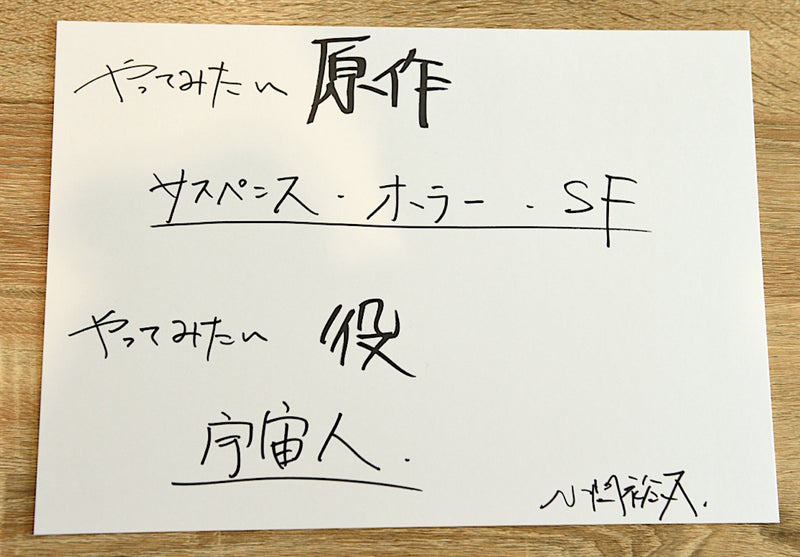 やってみたい原作
サスペンス・ホラー・SF
やってみたい役
宇宙人.